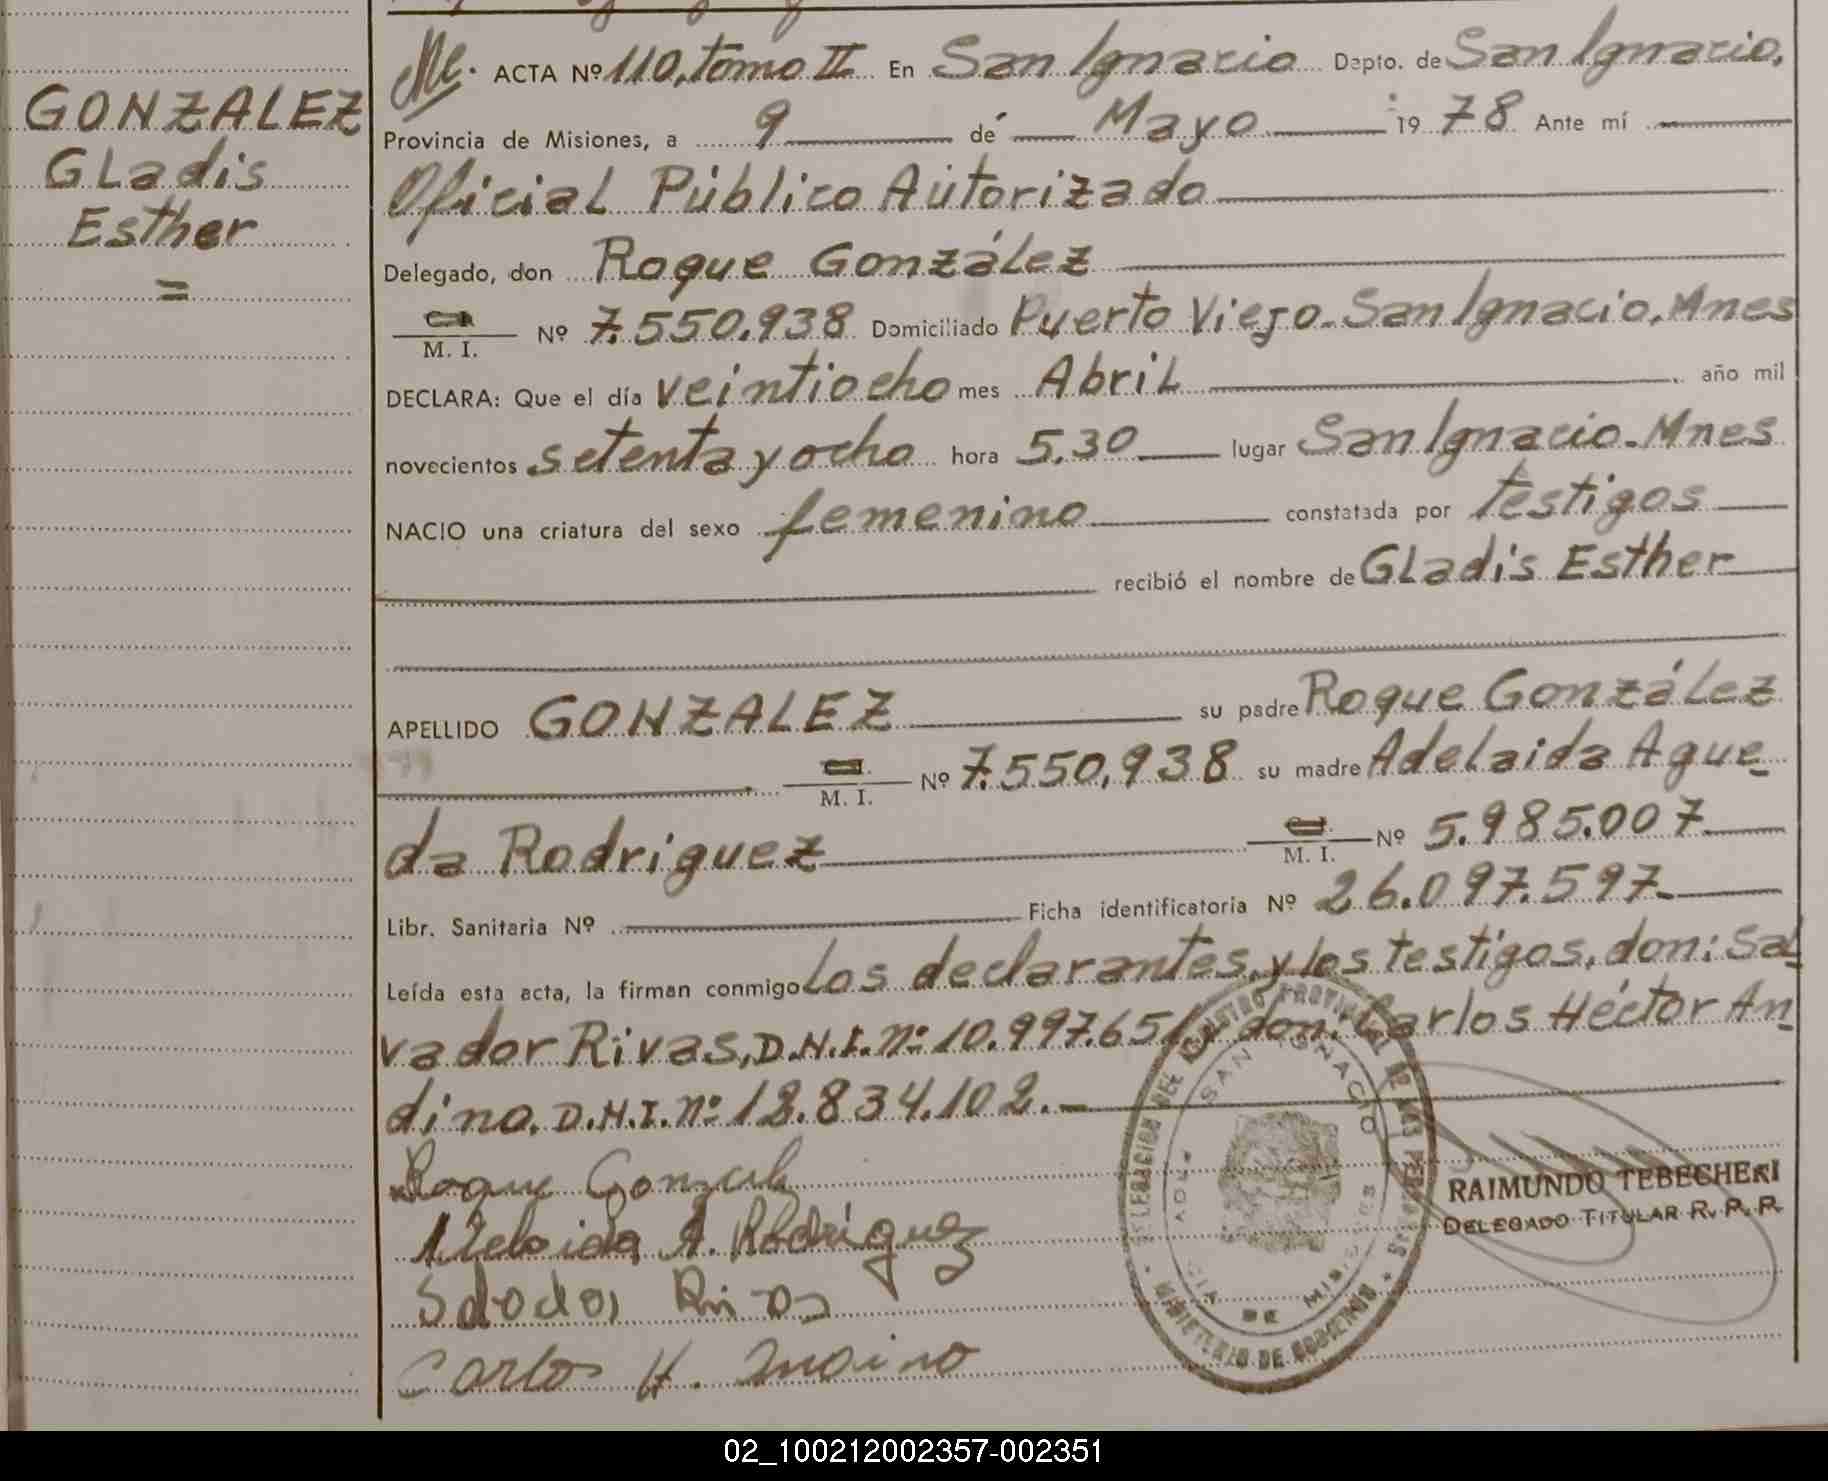 GONZALEZ
Gladis
Esther
=
ACTA Nº 110, tomo II En San Ignacio Depto. de San Ignacio,
Provincia de Misiones, a 9 de Mayo 19 78 Ante mí
Oficial Público Autorizado
Delegado, don Roque González
M. I. Nº 7.550.938 Domiciliado Puerto Viejo-San Ignacio, Mnes
DECLARA: Que el día veintiocho mes Abril año mil
novecientos setenta y ocho hora 5,30 lugar San Ignacio-Mnes
NACIO una criatura del sexo femenino constatada por testigos
recibió el nombre de Gladis Esther
APELLIDO GONZALEZ su padre Roque González
M. I. Nº 7.550,938 su madre Adelaida Ague-
da Rodriguez M. I. Nº 5.985.007
Libr. Sanitaria Nº Ficha identificatoria Nº 26.097.597-
Leída esta acta, la firman conmigo los declarantes, y los testigos, don: Sal-
vador Rivas, D.N.I. nº 10.997.651 y don: Carlos Héctor An-
dino, D.N.I. nº 12.834.102.-
Roque Gonzalez
Adelaida A. Rodriguez
Salvador Rivas
Carlos H. Andino
SAN IGNACIO
MINISTERIO DE GOBIERNO
RAIMUNDO TEBECHERI
DELEGADO TITULAR R. P. P.
02_100212002357-002351